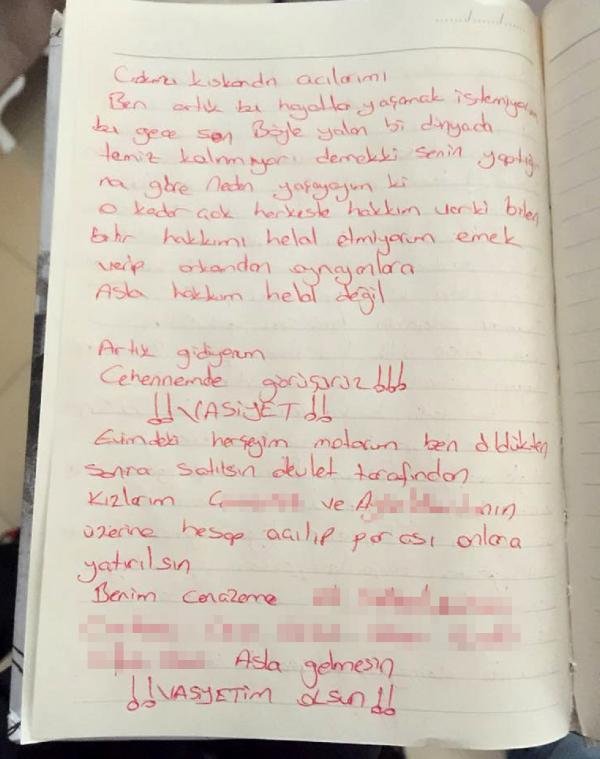 kıskandır acılarımı
Ben artık bu hayatta yaşamak istemiyorum
bu gece son Böyle yalan bi dünyada
temiz kalınmıyor demekki senin
na göre Neden yaşayayım ki
o kadar çok herkeste hakkım var ki bilen
bilir hakkımı helal etmiyorum emek
verip arkandan oynayanlara
Asla hakkım helal değil
Artık gidiyorum
Cehennemde görüşürüz !!!
!! VASİYET !!
Evimdeki herşeyim motorum ben öldükten
sonra satılsın devlet tarafından
Kızlarım ve nın
üzerine hesap açılıp parası onlara
yatırılsın
Benim cenazeme
Asla gelmesin
!! VASYETİM OLSUN !!